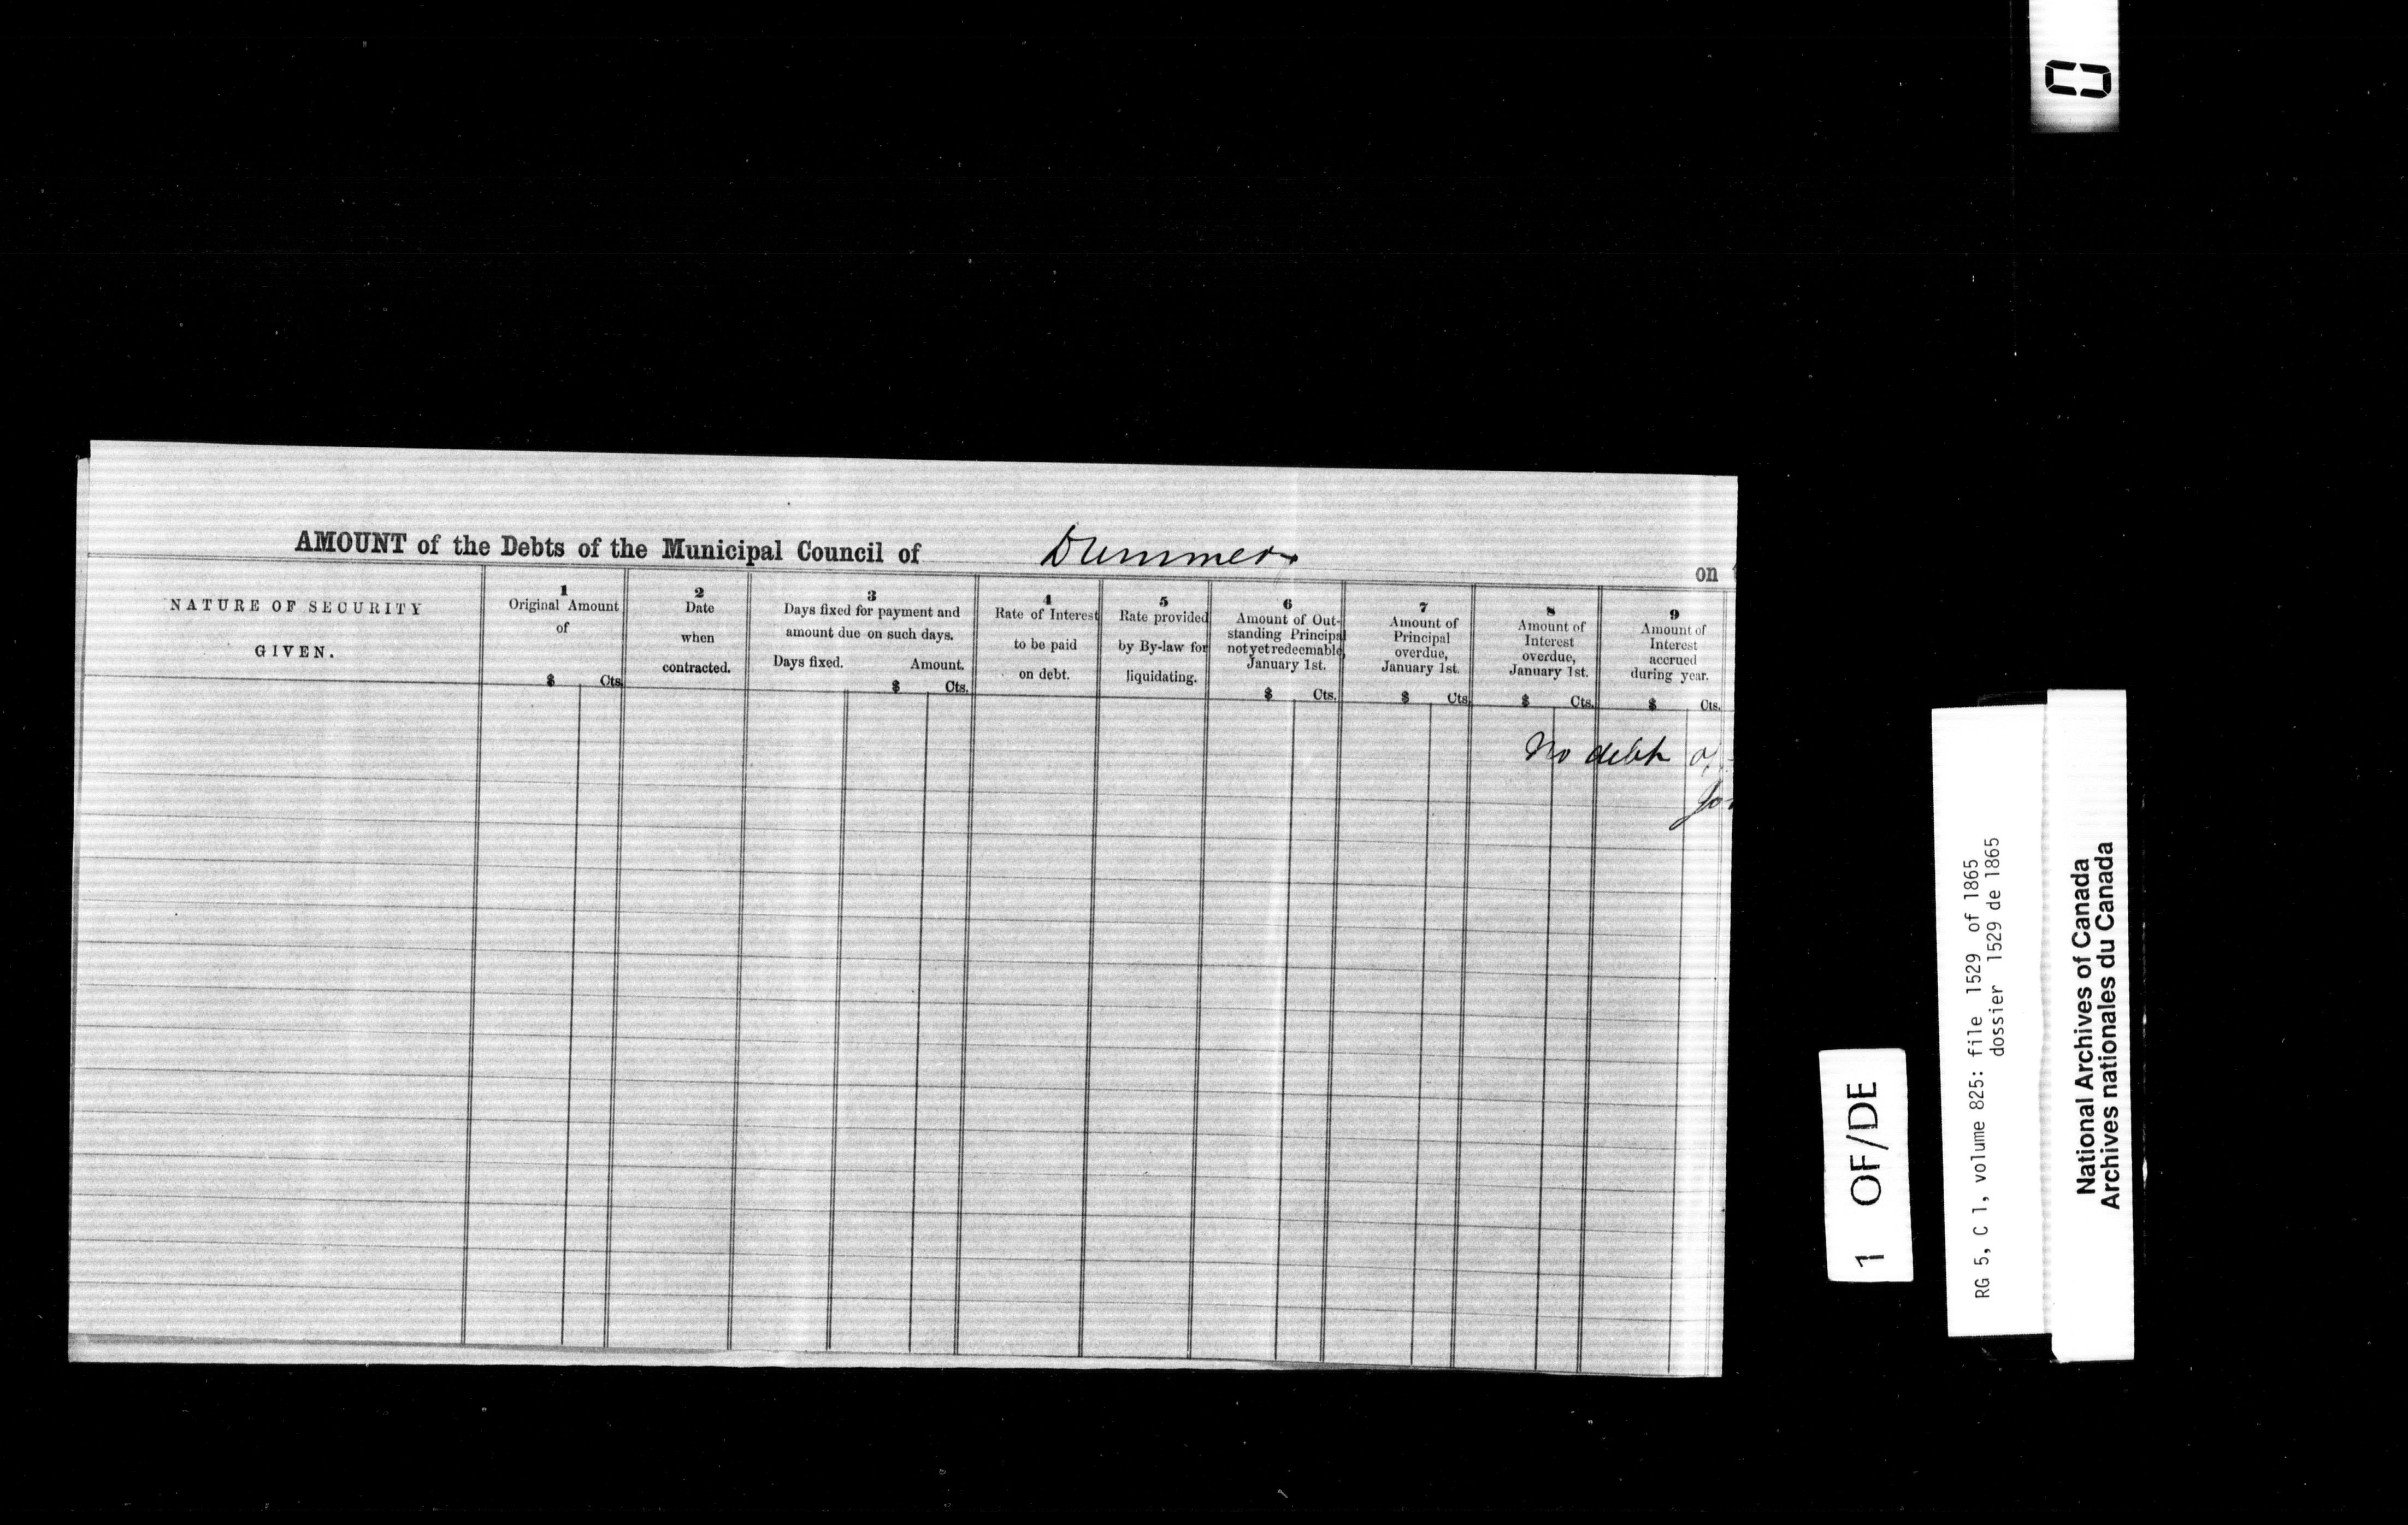 AMOUNT of the Debts of the Municipal Council of Dummer on
NATURE OF SECURITY
GIVEN.
1
Original Amount
of
$ Cts.
2
Date
when
contracted.
3
Days fixed for payment and
amount due on such days.
Days fixed. Amount.
$ Cts.
4
Rate of Interest
to be paid
on debt.
5
Rate provided
by By-law for
liquidating.
6
Amount of Out-
standing Principal
not yet redeemable,
January 1st.
$ Cts.
7
Amount of
Principal
overdue,
January 1st.
$ Cts.
8
Amount of
Interest
overdue,
January 1st.
$ Cts.
9
Amount of
Interest
accrued
during year.
$ Cts.
No debt
1 OF/DE
RG 5, C 1, volume 825: file 1529 of 1865
dossier 1529 de 1865
National Archives of Canada
Archives nationales du Canada